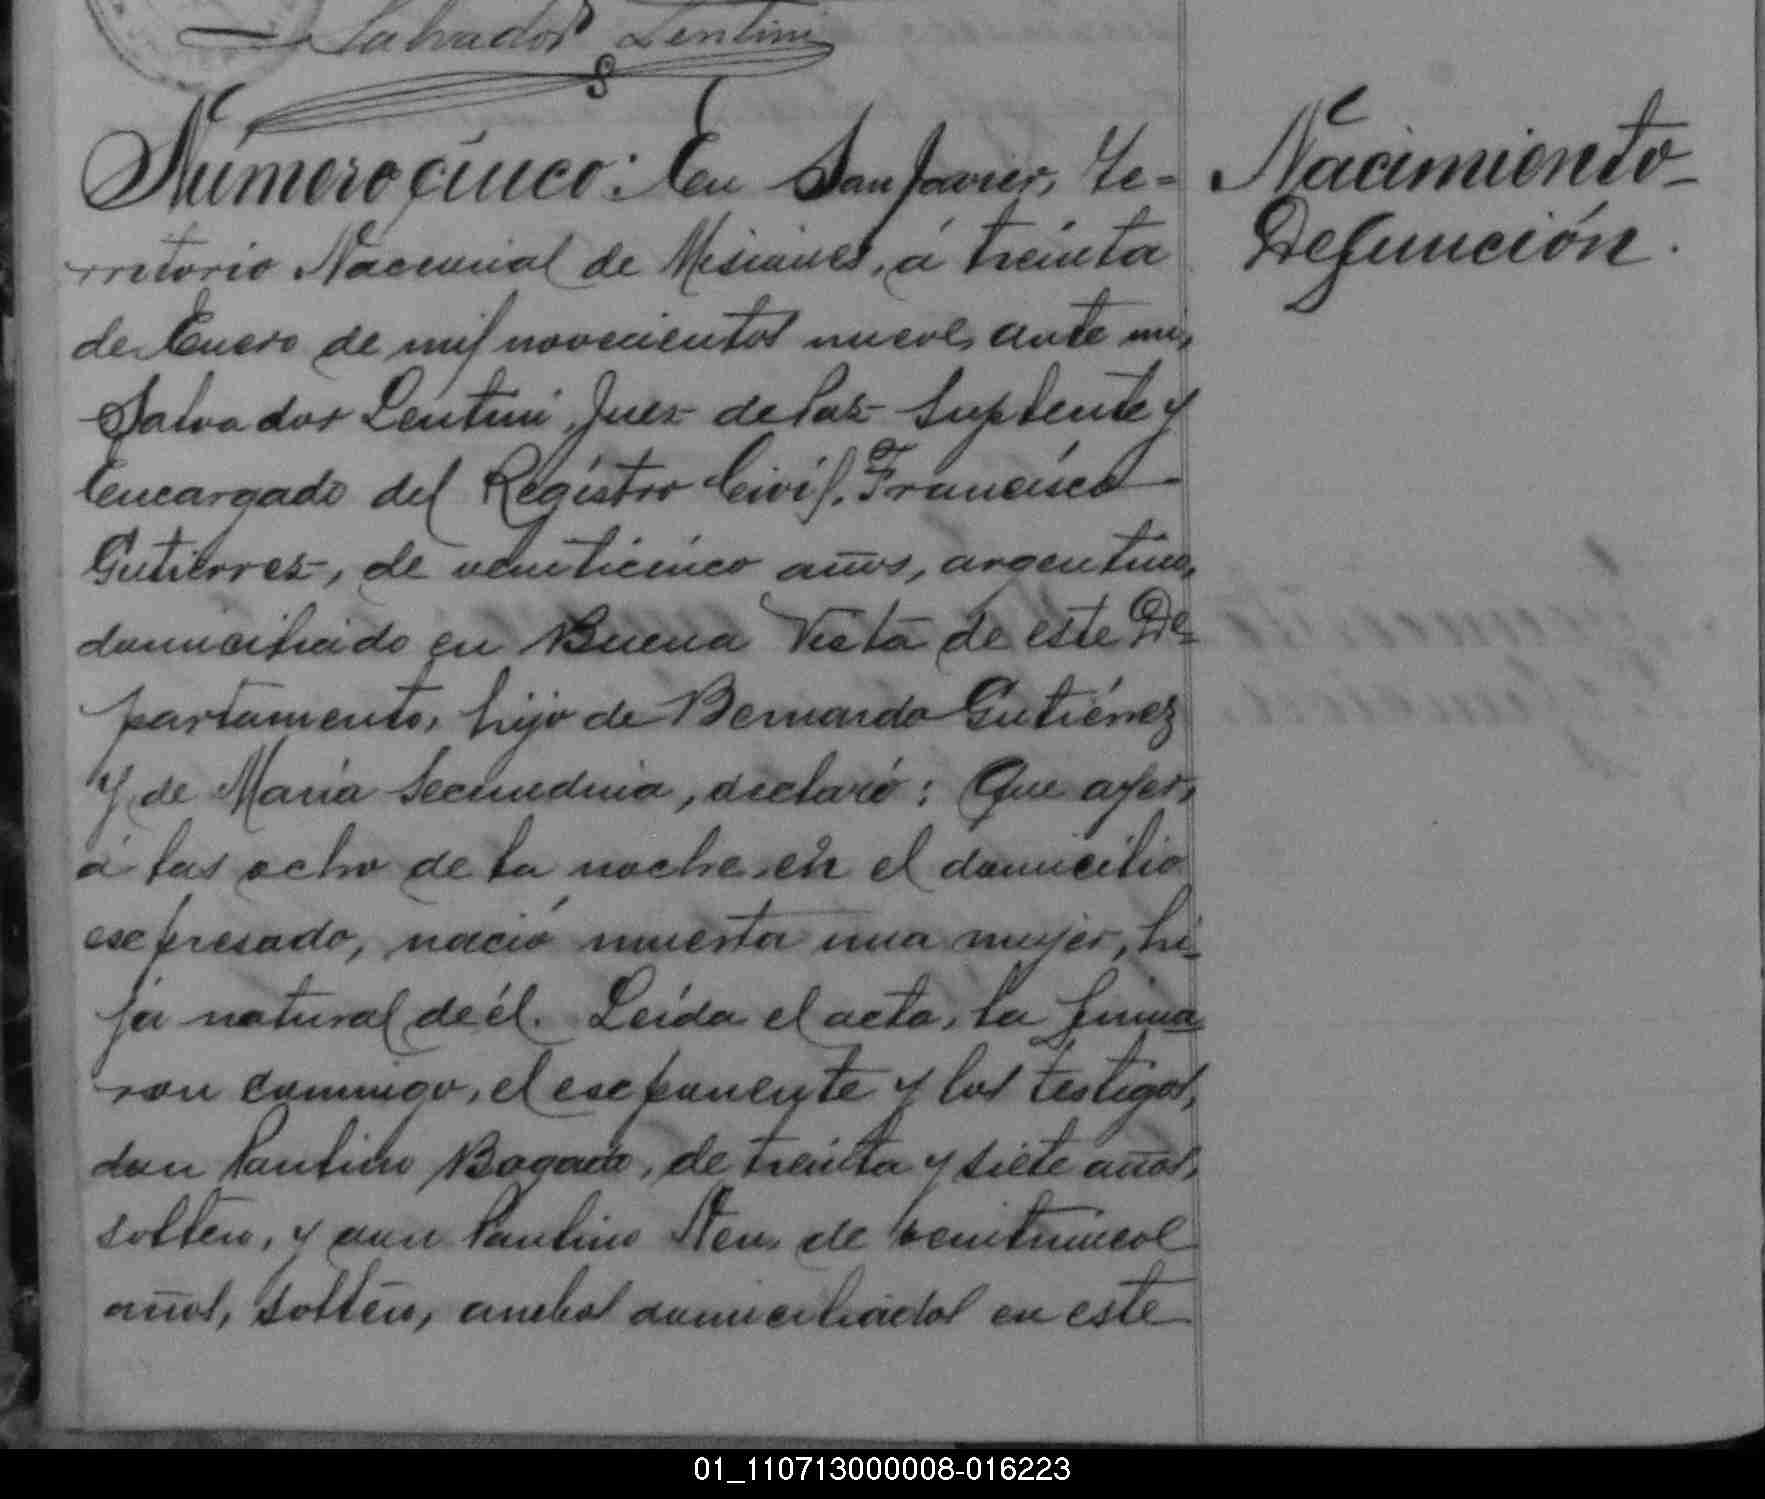 Salvador Lentini
Número cinco: En San Javier, Te=
rritorio Nacional de Misiones, á treinta
de Enero de mil novecientos nueve, ante mi,
Salvador Lentini, Juez de Paz Suplente y
Encargado del Registro Civil, Francisco
Gutierrez, de veinticinco años, argentino,
domiciliado en Buena Vista de este De=
partamento, hijo de Bernardo Gutiérrez
y de María Secundina, declaró: Que ayer,
á las ocho de la noche en el domicilio
esepresado, nació muerta una mujer, hi=
ja natural de él. Leída el acta, la firma
ron conmigo, el eseponente y los testigos,
don Paulino Bogado, de treinta y siete años,
soltero, y don Paulino de veintinueve
años, soltero, ambos domiciliados en este
Nacimiento-
Defunción.
01_110713000008-016223